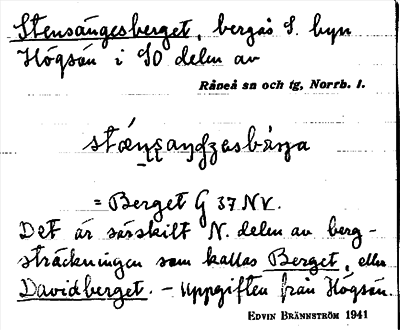 Stensängesberget, bergås S. byn
Högsön i SO delen av
Råneå sn och tg, Norrb. l.
= Berget G 37 NV.
Det är särskilt N. delen av berg-
sträckningen som kallas Berget, eller
Davidberget. – Uppgiften från Högsön.
EDVIN BRÄNNSTRÖM 1941